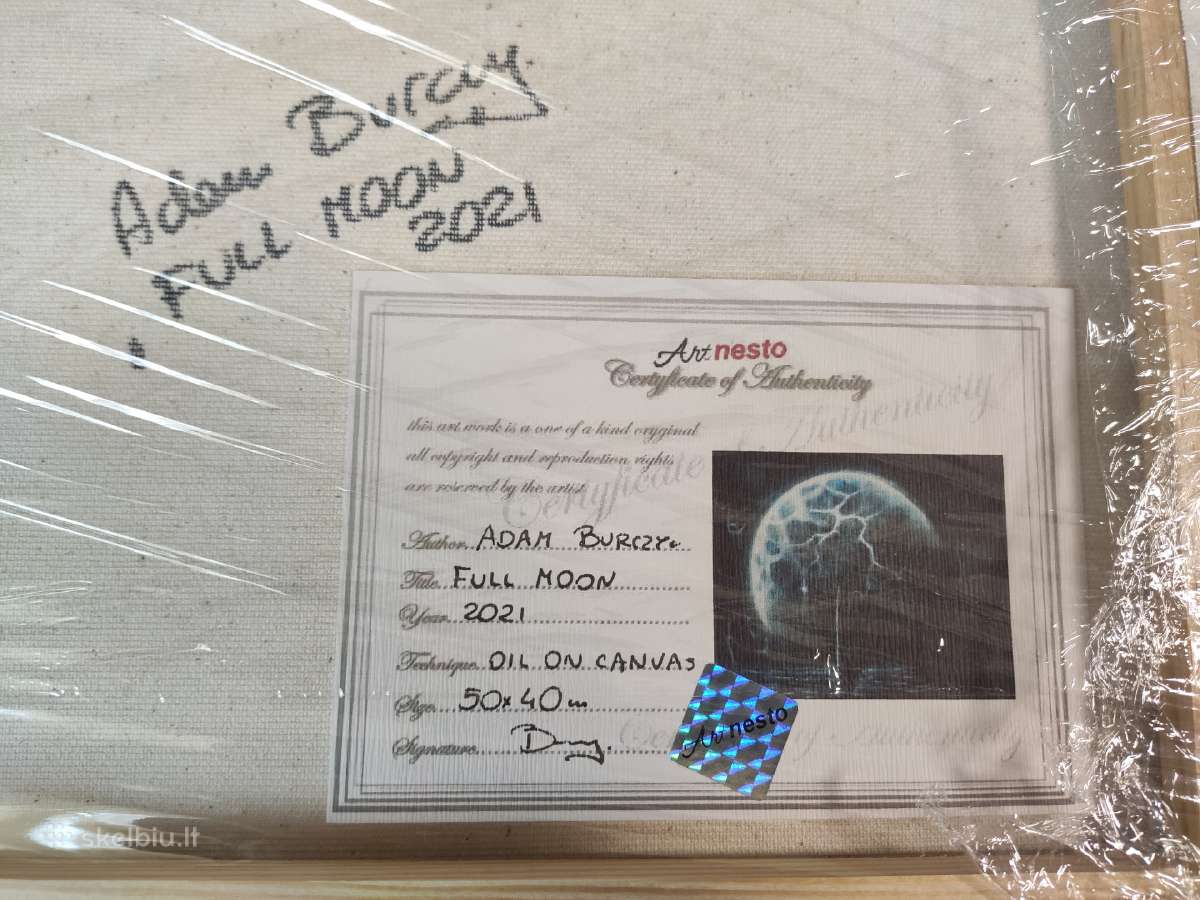 Adam Burczy
FULL MOON
2021
Art nesto
Certyficate of Authenticity
this art work is a one of a kind oryginal
all copyright and reproduction rights
are reserved by the artist
Author. ADAM BURCZYK
Title. FULL MOON
Year. 2021
Technique. OIL ON CANVAS
Size. 50x40cm
Signature.
Art nesto
skelbiu.lt